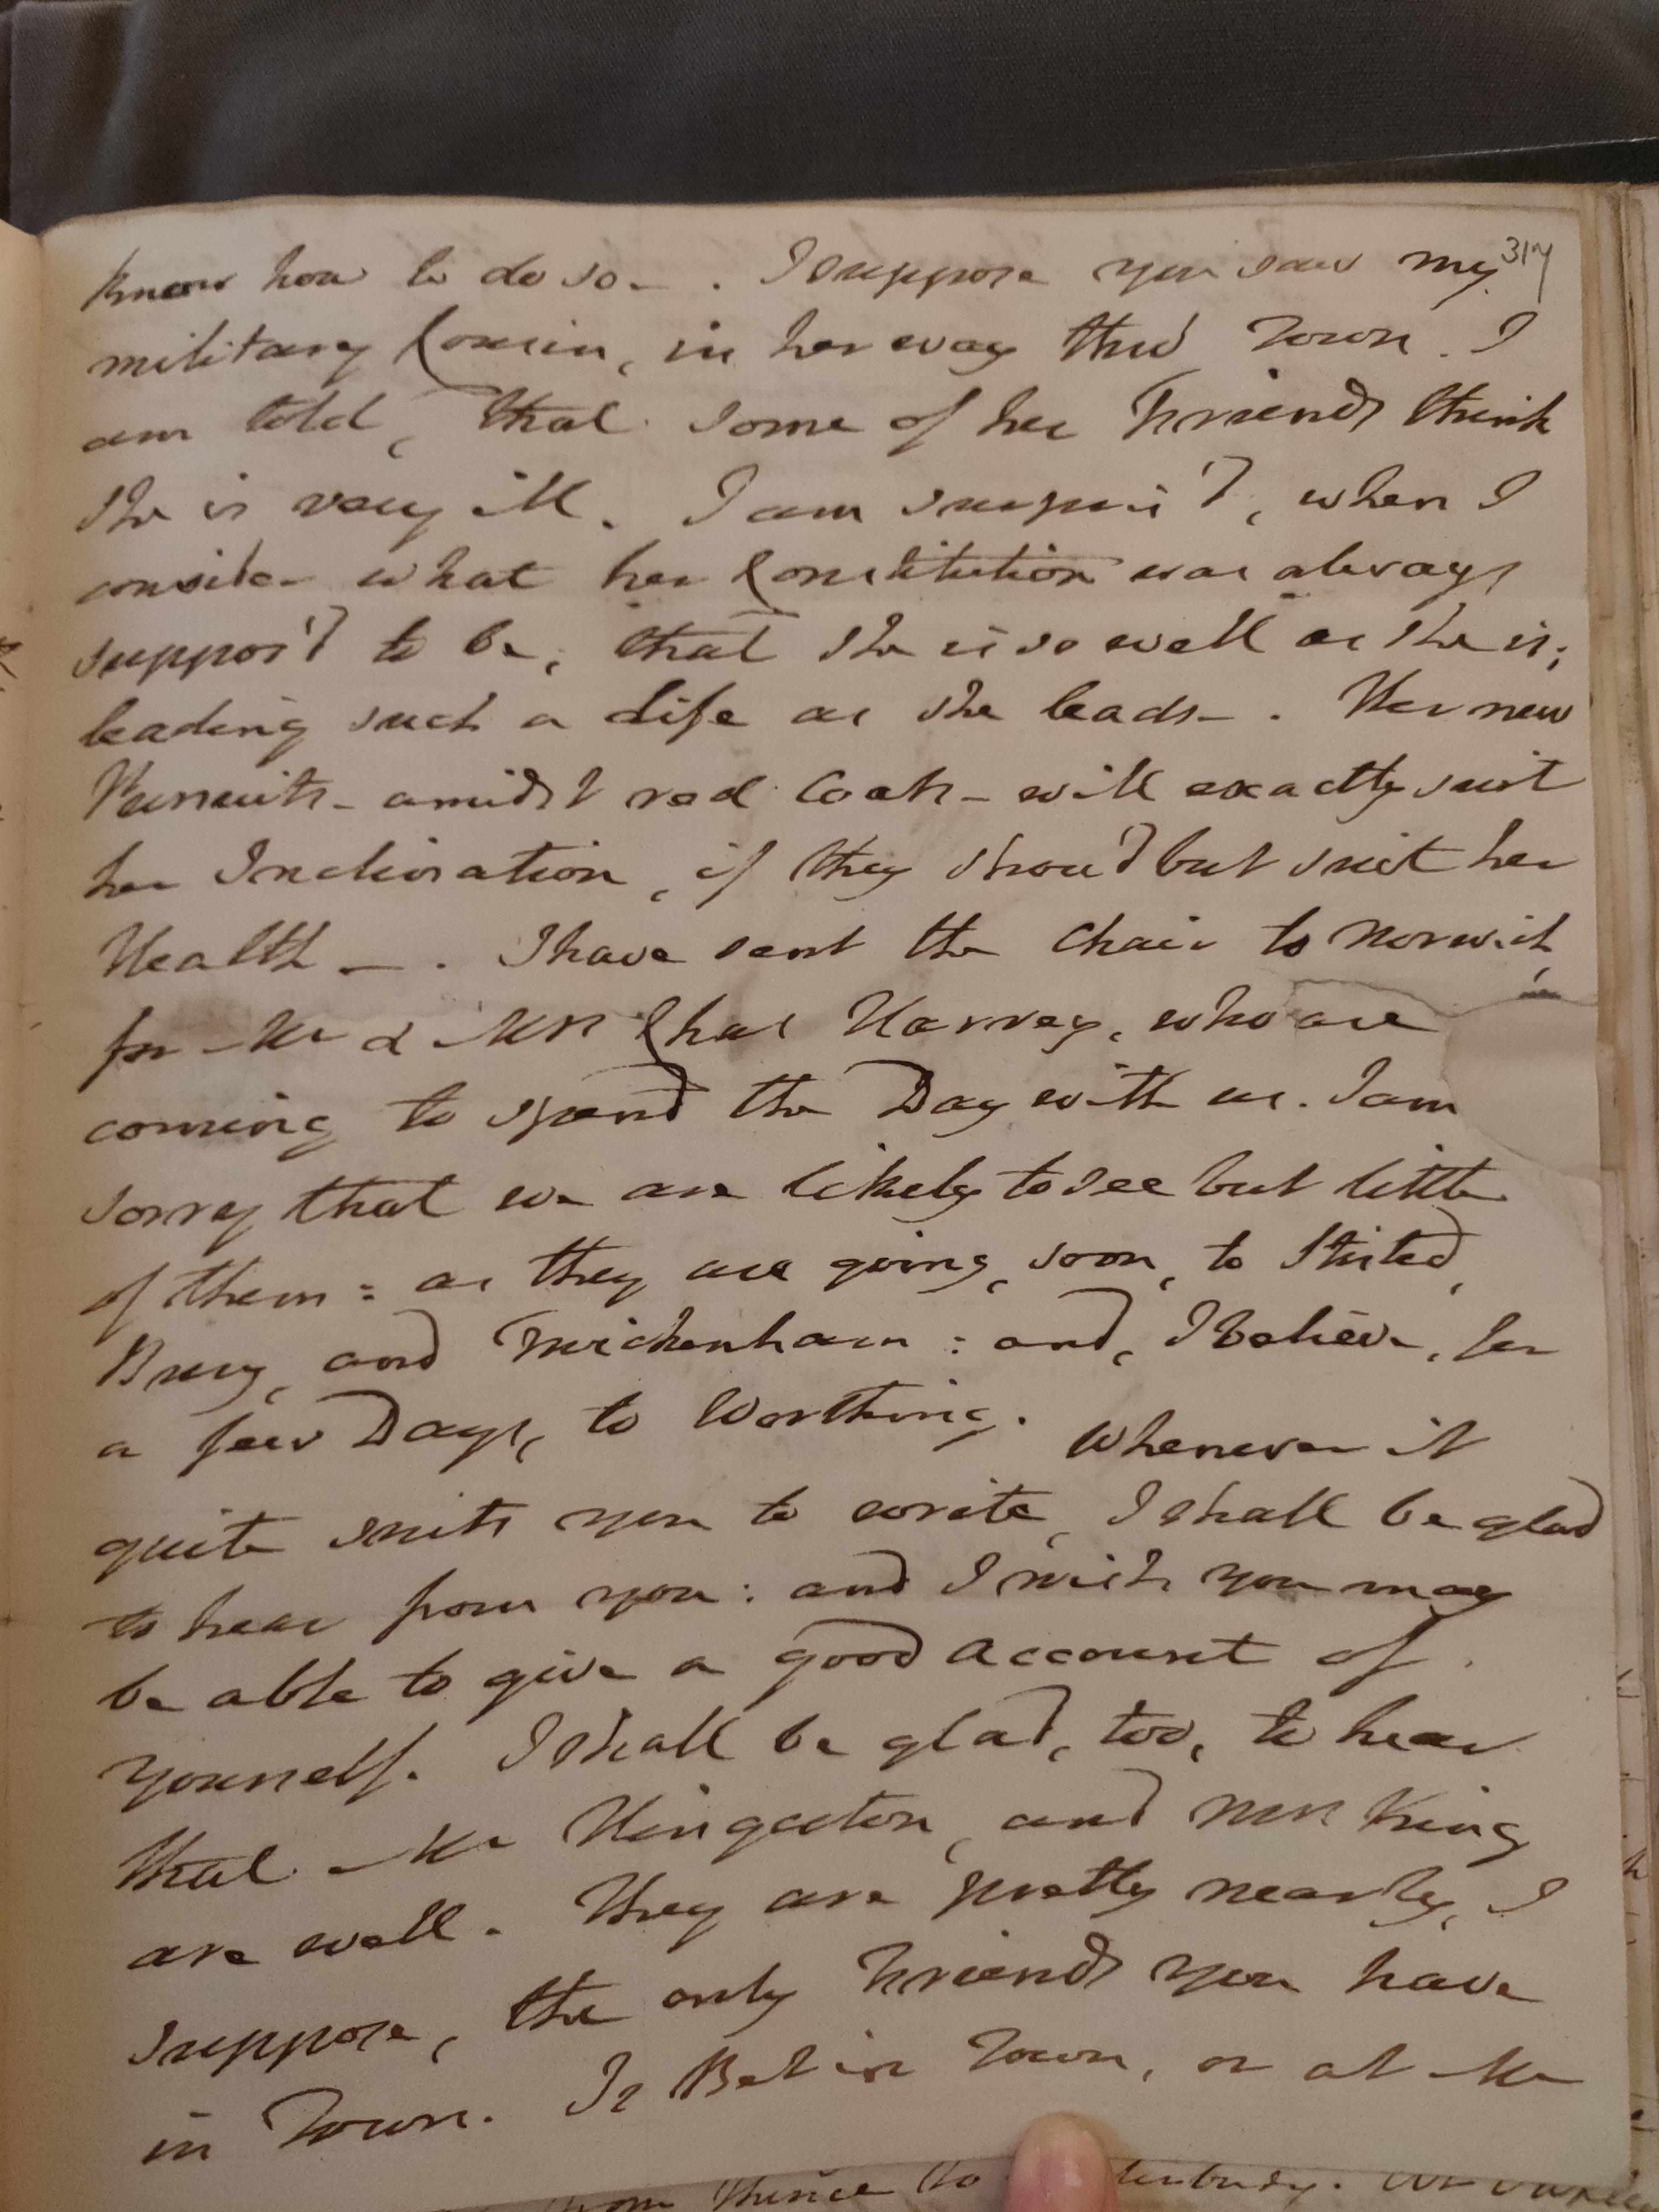 317
know how to do so _ . I suppose you saw my
military Cousin, in her way thro' Town. I
am told, that some of her Friends think
She is very ill. I am surpris'd, when I
consider what her Constitution was always
suppos'd to be, that She is so well as She is;
leading such a Life as she leads _ . Her new
Pursuits _ amidst red Coats _ will exactly suit
her Inclination, if they shou'd but suit her
Health _ . I have sent the Chair to Norwich,
for Mr & Mrs Chas Harvey, who are
coming to spend the Day with us. I am
sorry that we are likely to see but little
of them: as they are going, soon, to Stisted,
Bury, and Twickenham: and, I believe, for
a few Days, to Worthing. Whenever it
quite suits you to write, I shall be glad
to hear from you: and I wish you may
be able to give a good account of
yourself. I shall be glad, too, to hear
that Mr Hingeston, and Mrs King
are well. They are pretty nearly, I
suppose, the only Friends you have
in Town. Is Bet in Town, or at Mr
from thence to